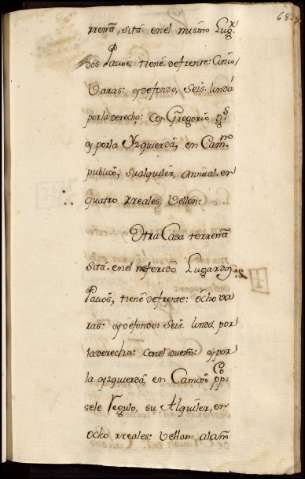 rrena, sita en el mismo Lug.r
dos Pauos: tiene de frente: Cinco
Varas: y de fondo, seis: linda
por la derecha: Con Gregorio
y por la Yzquierda, en Cam.no
publico, su alquiler, annual, en
quatro rreales Vellon:
Otra Casa terrena
sita, en el referido Lugar dos
Pauos, tiene de frente: ocho va
ras: y de fondo seis linda por
la derecha: con el y por
la yzquierda, en Camino
se le regulo, su Alquiler, en
ocho rreales: Vellon, alam